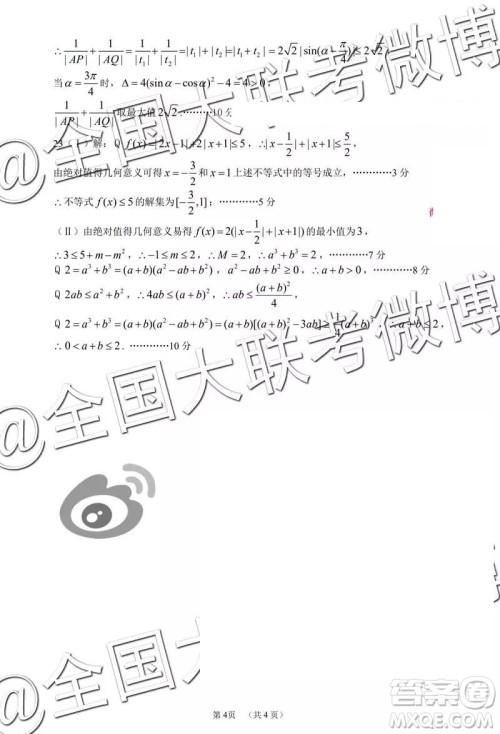 ∴ 1/|AP| + 1/|AQ| = 1/|t₁| + 1/|t₂| =|t₁|+|t₂|=|t₁+t₂|= 2√2|sin(α−π/4)| ≤ 2√2,
当 α = 3π/4 时，Δ = 4(sin α − cos α)² − 4 = 4 > 0，
1/|AP| + 1/|AQ| 取最大值 2√2 ………10分
f(x)=|2x−1|+2|x+1|≤5，∴|x−1/2|+|x+1|≤5/2，
由绝对值得几何意义可得 x=−3/2 和 x=1 上述不等式中的等号成立，…………3分
∴不等式 f(x)≤5 的解集为[−3/2,1]；…………5分
（Ⅱ）由绝对值得几何意义易得 f(x)=2(|x−1/2|+|x+1|) 的最小值为3，
∴3≤5+m−m²，∴−1≤m≤2，∴M=2，∴a³+b³=2，…………7分
Q 2=a³+b³=(a+b)(a²−ab+b²)，a²−ab+b²≥0，∴a+b>0，…………8分
Q 2ab≤a²+b²，∴4ab≤(a+b)²，∴ab≤(a+b)²/4，
Q 2=a³+b³=(a+b)(a²−ab+b²)=(a+b)[(a+b)²−3ab]≥1/4(a+b)³，∴a+b≤2，
∴0<a+b≤2．…………10分
@全国大联考微博
@全国大联考微博
第4页 （共4页）
答案圈
MXQE.COM